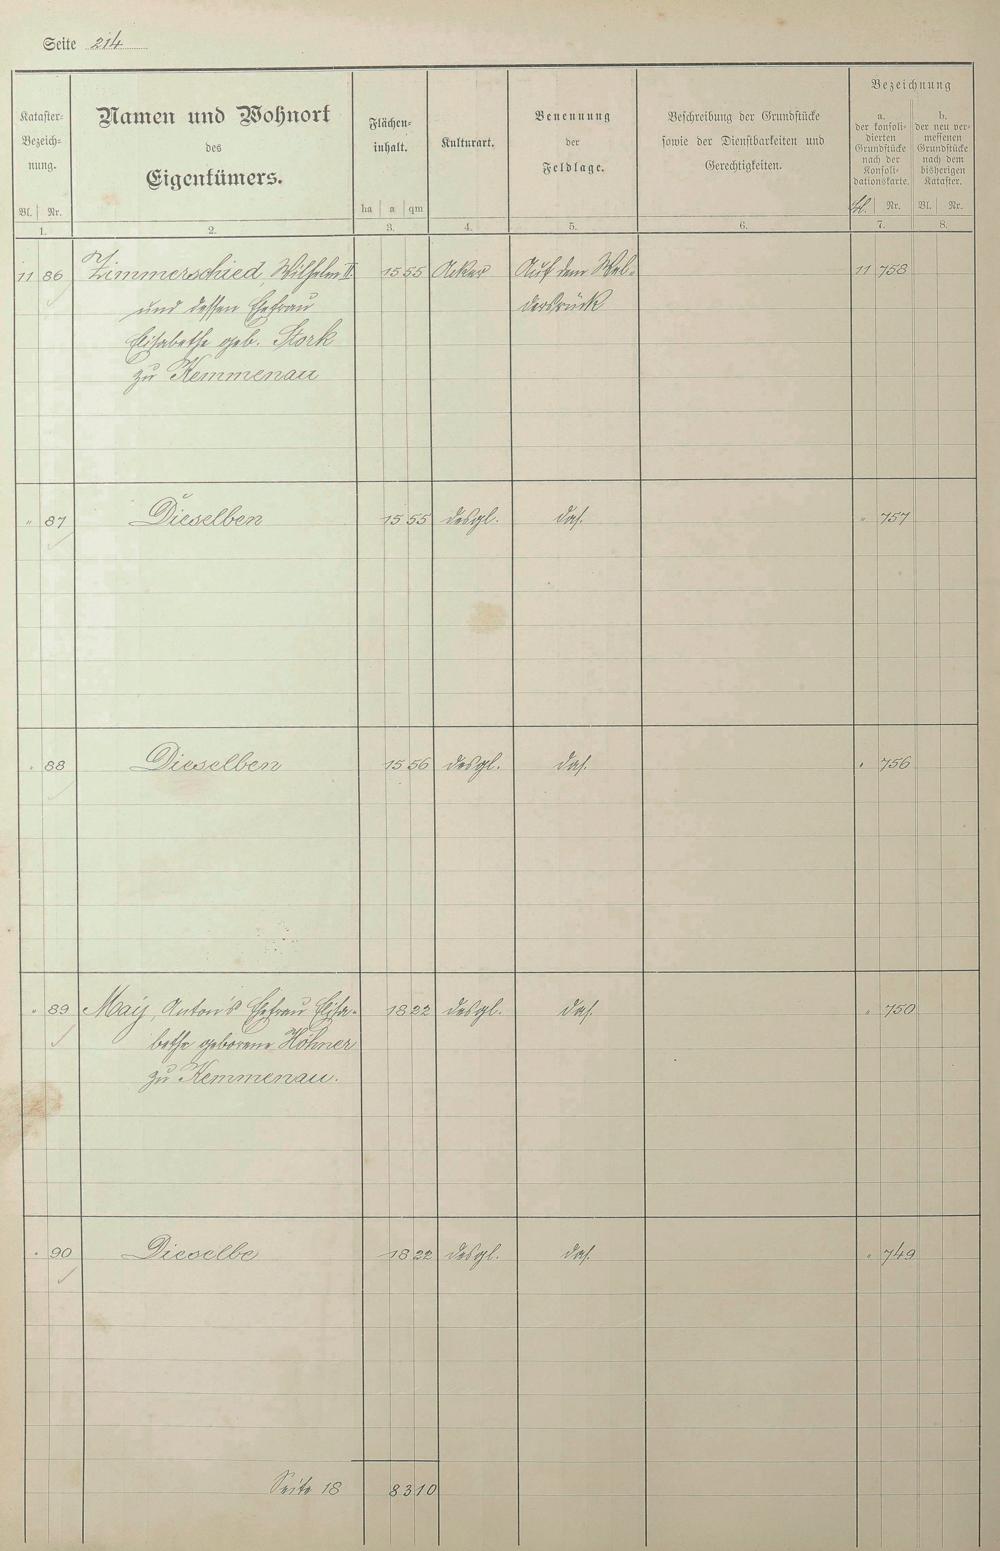 Seite 214
Kataster-
Bezeich-
nung.
Bl. Nr.
Namen und Wohnort
des
Eigentümers.
Flächen-
inhalt.
ha a qm
Kulturart.
Benennung
der
Feldlage.
Beschreibung der Grundstücke
sowie der Dienstbarkeiten und
Gerechtigkeiten.
Bezeichnung
a.
der konsoli-
dierten
Grundstücke
nach der
Konsoli-
dationskarte.
Bl. Nr.
b.
der neu ver-
messenen
Grundstücke
nach dem
bisherigen
Kataster.
Bl. Nr.
1. 2. 3. 4. 5. 6. 7. 8.
11 86 Zimmerschied, Wilhelm II. 15 55 Acker Auf dem Wel- 11 758
und dessen Ehefrau dersrück
Elisabethe geb. Stork
zu Kemmenau
" 87 Dieselben 15 55 desgl. das. " 757
" 88 Dieselben 15 56 desgl. das. " 756
" 89 May, Anton's Ehefrau Elisa- 18 22 desgl. das. " 750
bethe geborene Höhner
zu Kemmenau.
" 90 Dieselbe 18 22 desgl. das. " 749
Seite 18 83 10